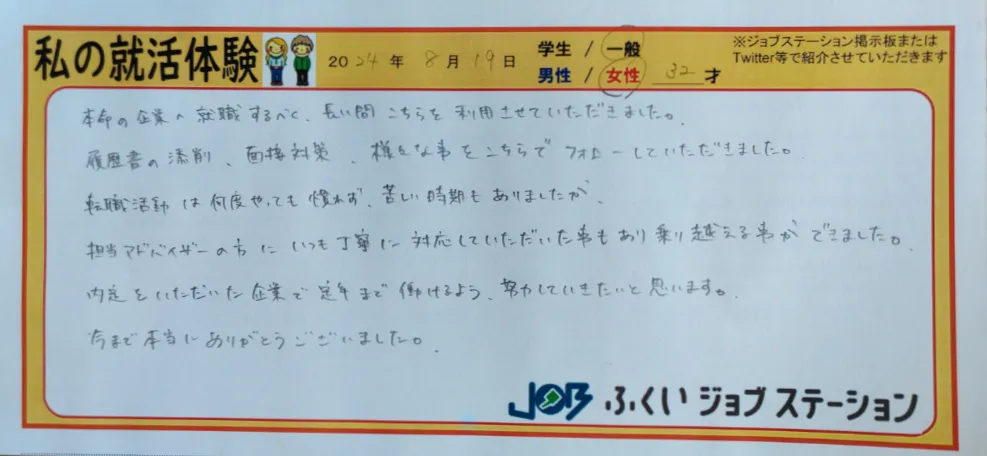 私の就活体験
2024年 8月 19日
学生 / 一般
男性 / 女性 32才
※ジョブステーション掲示板または
Twitter等で紹介させていただきます
本命の企業へ就職するべく、長い間こちらを利用させていただきました。
履歴書の添削、面接対策、様々な事をこちらでフォローしていただきました。
転職活動は何度やっても慣れず、苦しい時期もありましたが、
担当アドバイザーの方にいつも丁寧に対応していただいた事もあり乗り越える事ができました。
内定をいただいた企業で定年まで働けるよう、努力していきたいと思います。
今まで本当にありがとうございました。
JOB ふくいジョブステーション